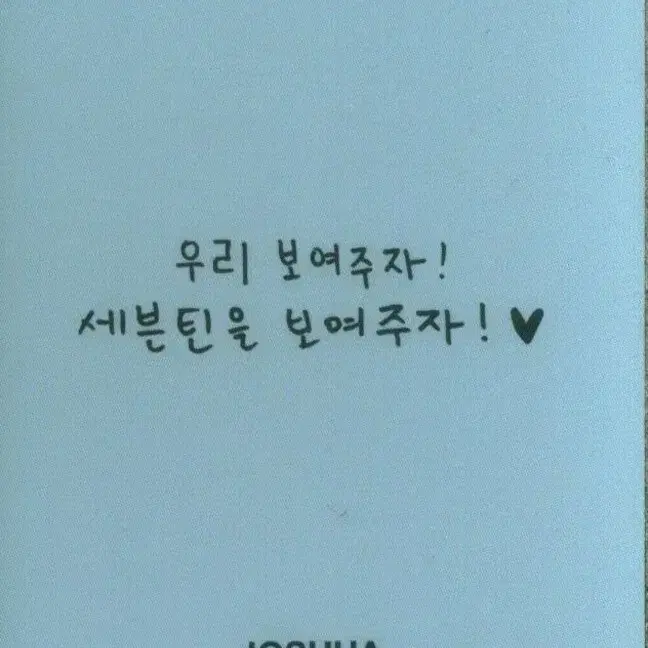 우리 보여주자!
세븐틴을 보여주자! ♥
JOSHUA